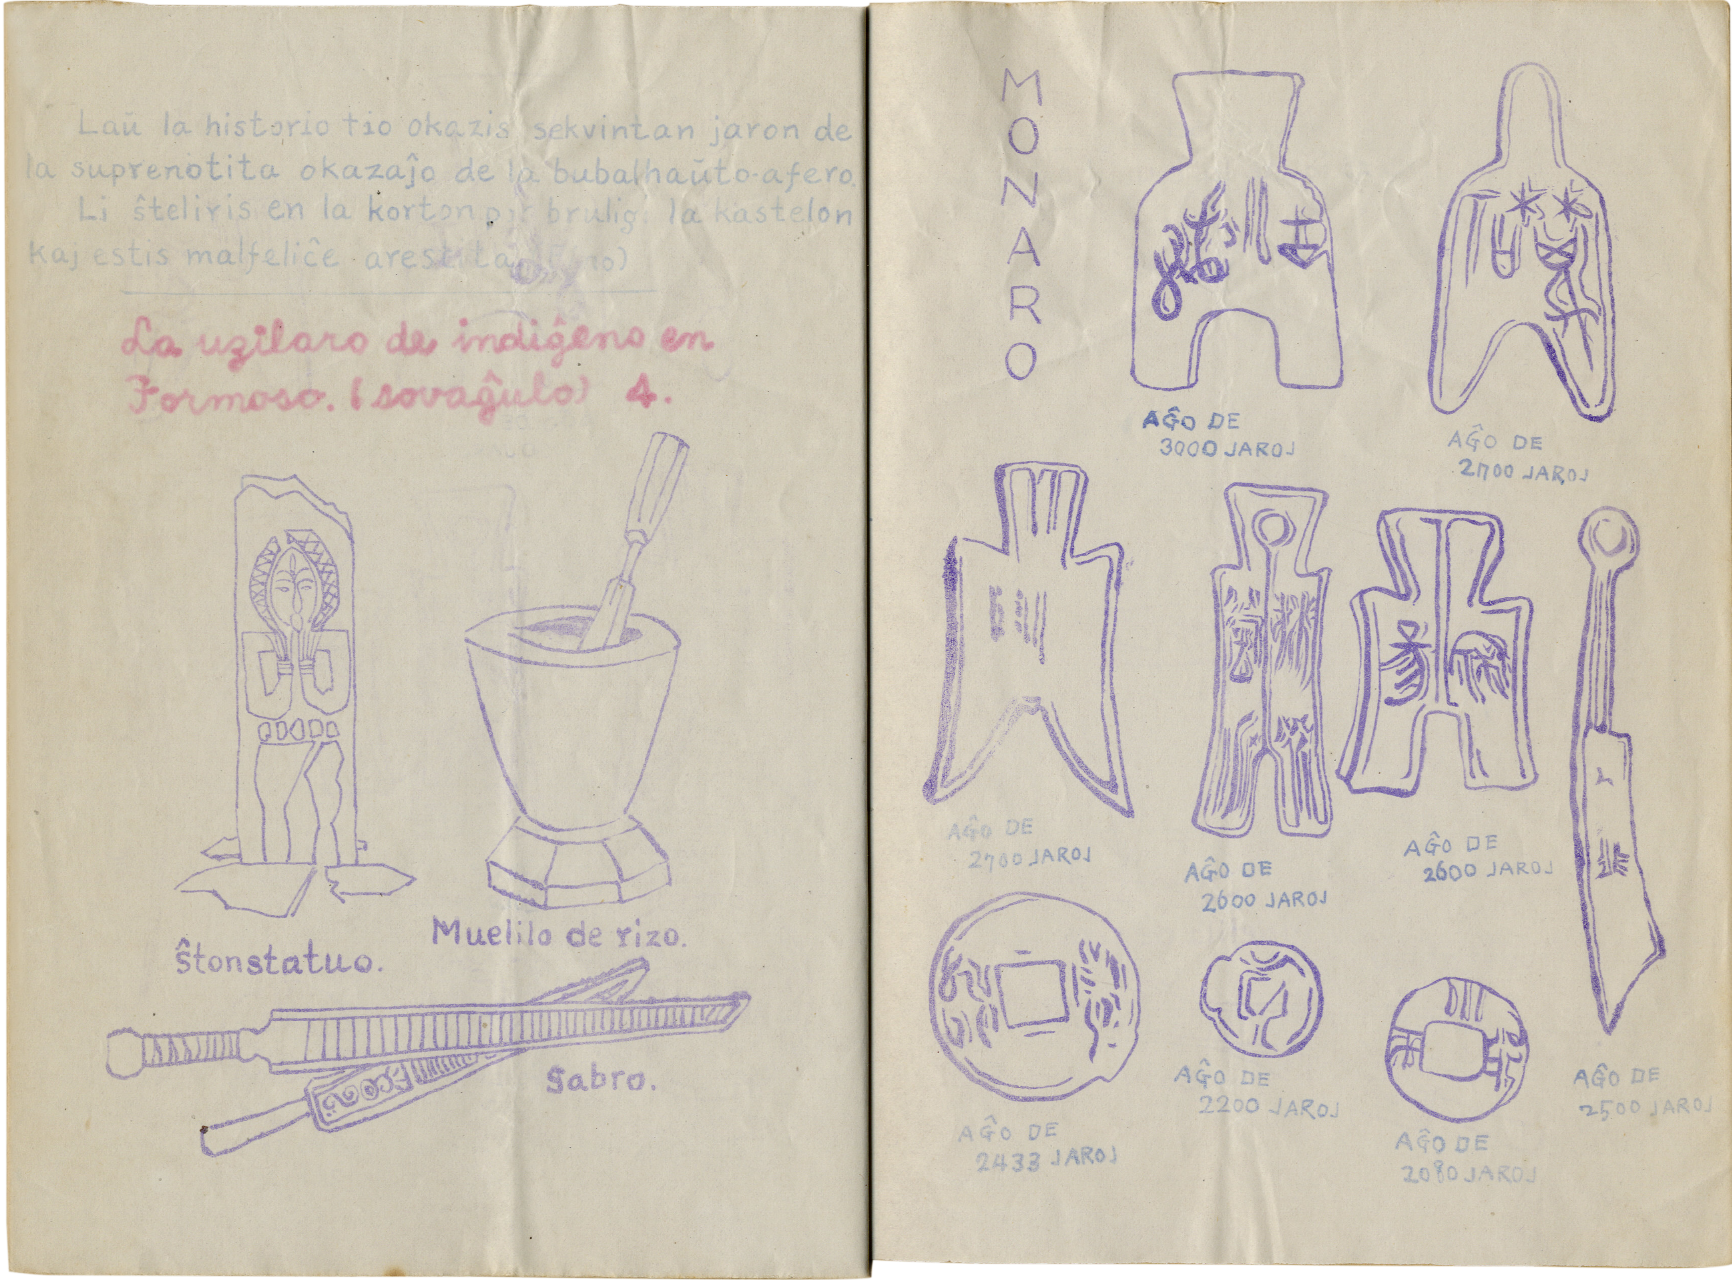 Laŭ la historio tio okazis sekvintan jaron de
la suprenotita okazaĵo de la bubalhaŭto-afero.
Li ŝteliris en la korton por brulig. la kastelon
kaj estis malfeliĉe arestita.
La uzilaro de indiĝeno en
Formoso. (sovaĝulo) 4.
Ŝtonstatuo.
Muelilo de rizo.
Sabro.
MONARO
AĜO DE
3000 JAROJ
AĜO DE
2700 JAROJ
AĜO DE
2700 JAROJ
AĜO DE
2600 JAROJ
AĜO DE
2600 JAROJ
AĜO DE
2433 JAROJ
AĜO DE
2200 JAROJ
AĜO DE
2080 JAROJ
AĜO DE
2500 JAROJ